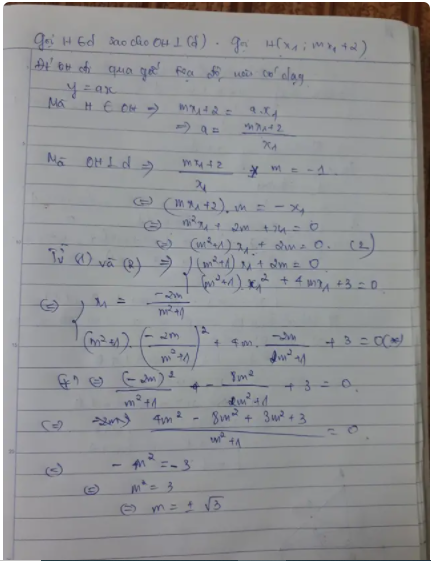 Gọi H ∈ d sao cho OH ⊥ (d). Gọi H(x₁; mx₁+2)
OH đi qua gốc tọa độ nên có dạng
y = ax
Mà H ∈ OH => mx₁+2 = a.x₁
=> a = (mx₁+2)/x₁
Mà OH ⊥ d => (mx₁+2)/x₁ * m = -1.
(=) (mx₁+2).m = -x₁
(=) m²x₁ + 2m + x₁ = 0
(=) (m²+1)x₁ + 2m = 0. (2)
Từ (1) và (2) => { (m²+1)x₁ + 2m = 0
(m²+1).x₁² + 4mx₁ + 3 = 0
(=) { x₁ = -2m/(m²+1)
(m²+1).(-2m/(m²+1))² + 4m.(-2m/(m²+1)) + 3 = 0 (*)
(=) (-2m)²/(m²+1) - 8m²/(m²+1) + 3 = 0.
(=) (4m² - 8m² + 3m² + 3)/(m²+1) = 0
(=) -m² = -3
(=) m² = 3
(=) m = ± √3